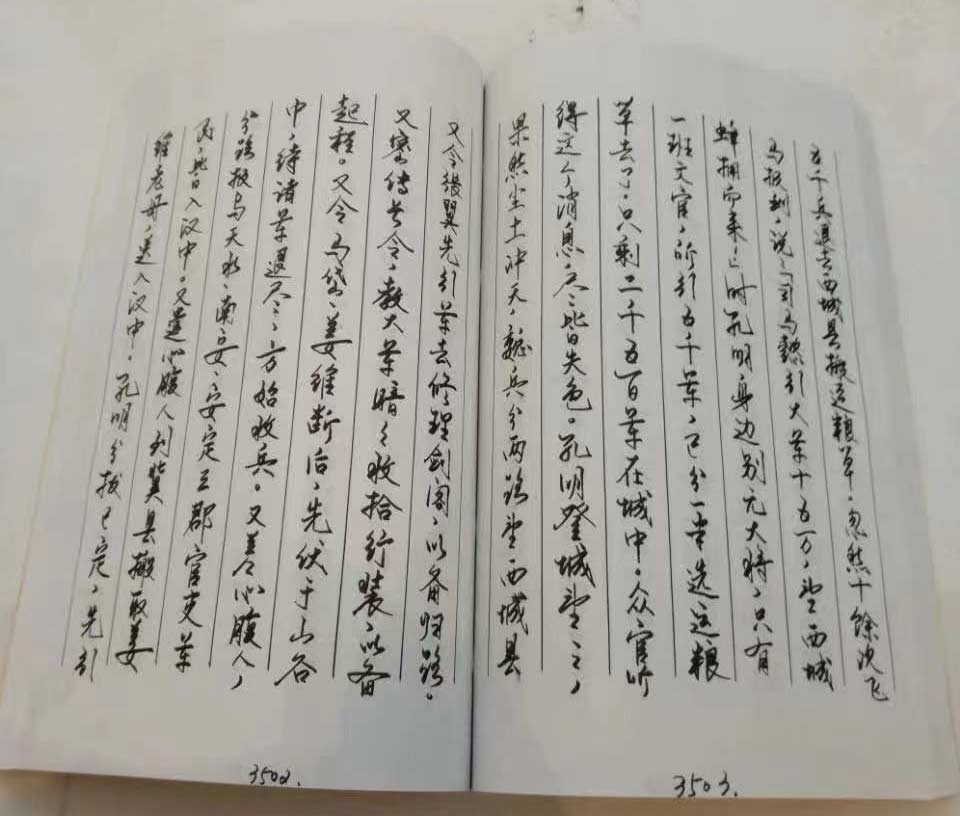 又令张翼先引军去修理剑阁，以备归路。
又密传号令，教大军暗暗收拾行装，以备
起程。又令马岱、姜维断后，先伏于山谷
中，待诸军退尽，方始收兵。又差心腹人，
分路报与天水、南安、安定三郡官吏军
民，皆入汉中。又遣心腹人到冀县搬取姜
维老母，送入汉中。孔明分拨已定，先引
3502.
五千兵退去西城县搬运粮草。忽然十余次飞
马报到，说：司马懿引大军十五万，望西城
蜂拥而来！时孔明身边别无大将，只有
一班文官，所引五千军，已分一半先运粮
草去了，只剩二千五百军在城中。众官听
得这个消息，尽皆失色。孔明登城望之，
果然尘土冲天，魏兵分两路望西城县
3503.